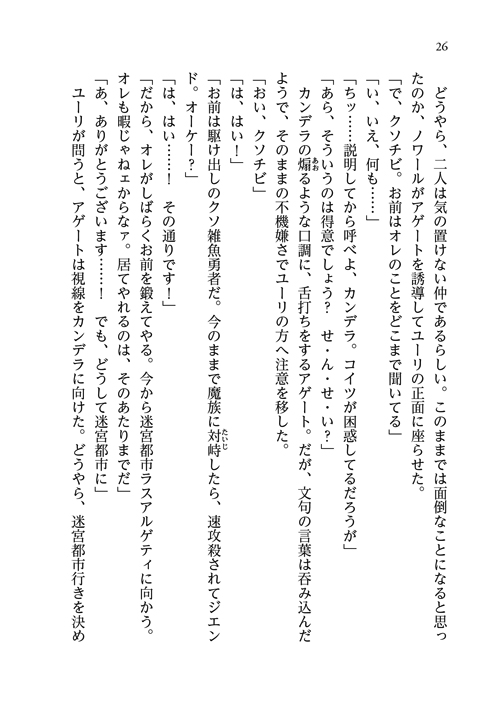 26
どうやら、二人は気の置けない仲であるらしい。このままでは面倒なことになると思っ
たのか、ノワールがアゲートを誘導してユーリの正面に座らせた。
「で、クソチビ。お前はオレのことをどこまで聞いてる」
「い、いえ、何も……」
「ちッ……説明してから呼べよ、カンデラ。コイツが困惑してるだろうが」
「あら、そういうのは得意でしょう？　せ・ん・せ・い？」
カンデラの煽るような口調に、舌打ちをするアゲート。だが、文句の言葉は呑み込んだ
ようで、そのままの不機嫌さでユーリの方へ注意を移した。
「おい、クソチビ」
「は、はい！」
「お前は駆け出しのクソ雑魚勇者だ。今のままで魔族に対峙したら、速攻殺されてジエン
ド。オーケー？」
「は、はい……！　その通りです！」
「だから、オレがしばらくお前を鍛えてやる。今から迷宮都市ラスアルゲティに向かう。
オレも暇じゃねェからなァ。居てやれるのは、そのあたりまでだ」
「あ、ありがとうございます……！　でも、どうして迷宮都市に」
ユーリが問うと、アゲートは視線をカンデラに向けた。どうやら、迷宮都市行きを決め